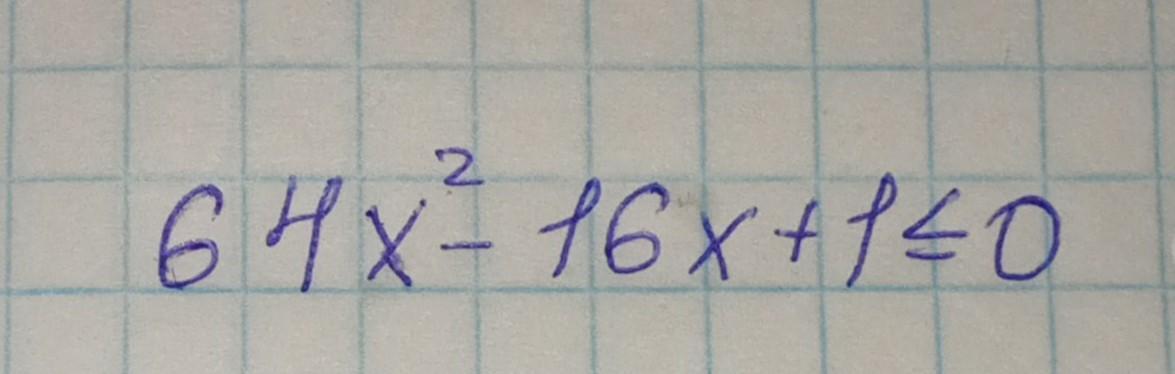 64x² - 16x + 1 ≤ 0